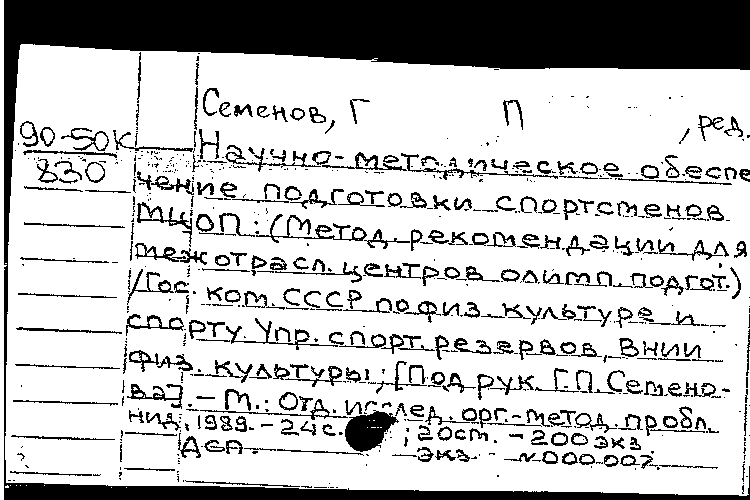 Семенов, Г П , ред.
90-50К
830
Научно-методическое обеспе
чение подготовки спортсменов
МЦОП: (Метод. рекомендации для
межотрасл. центров олимп. подгот.)
/Гос. ком. СССР по физ. культуре и
спорту. Упр. спорт. резервов, ВНИИ
физ. культуры; [Под рук. Г.П. Семено-
ва]. – М.: Отд. исслед. орг.-метод. пробл.
НИД, 1989. – 24с. ; 20см. – 200 экз.
ДСП. экз №000.007.